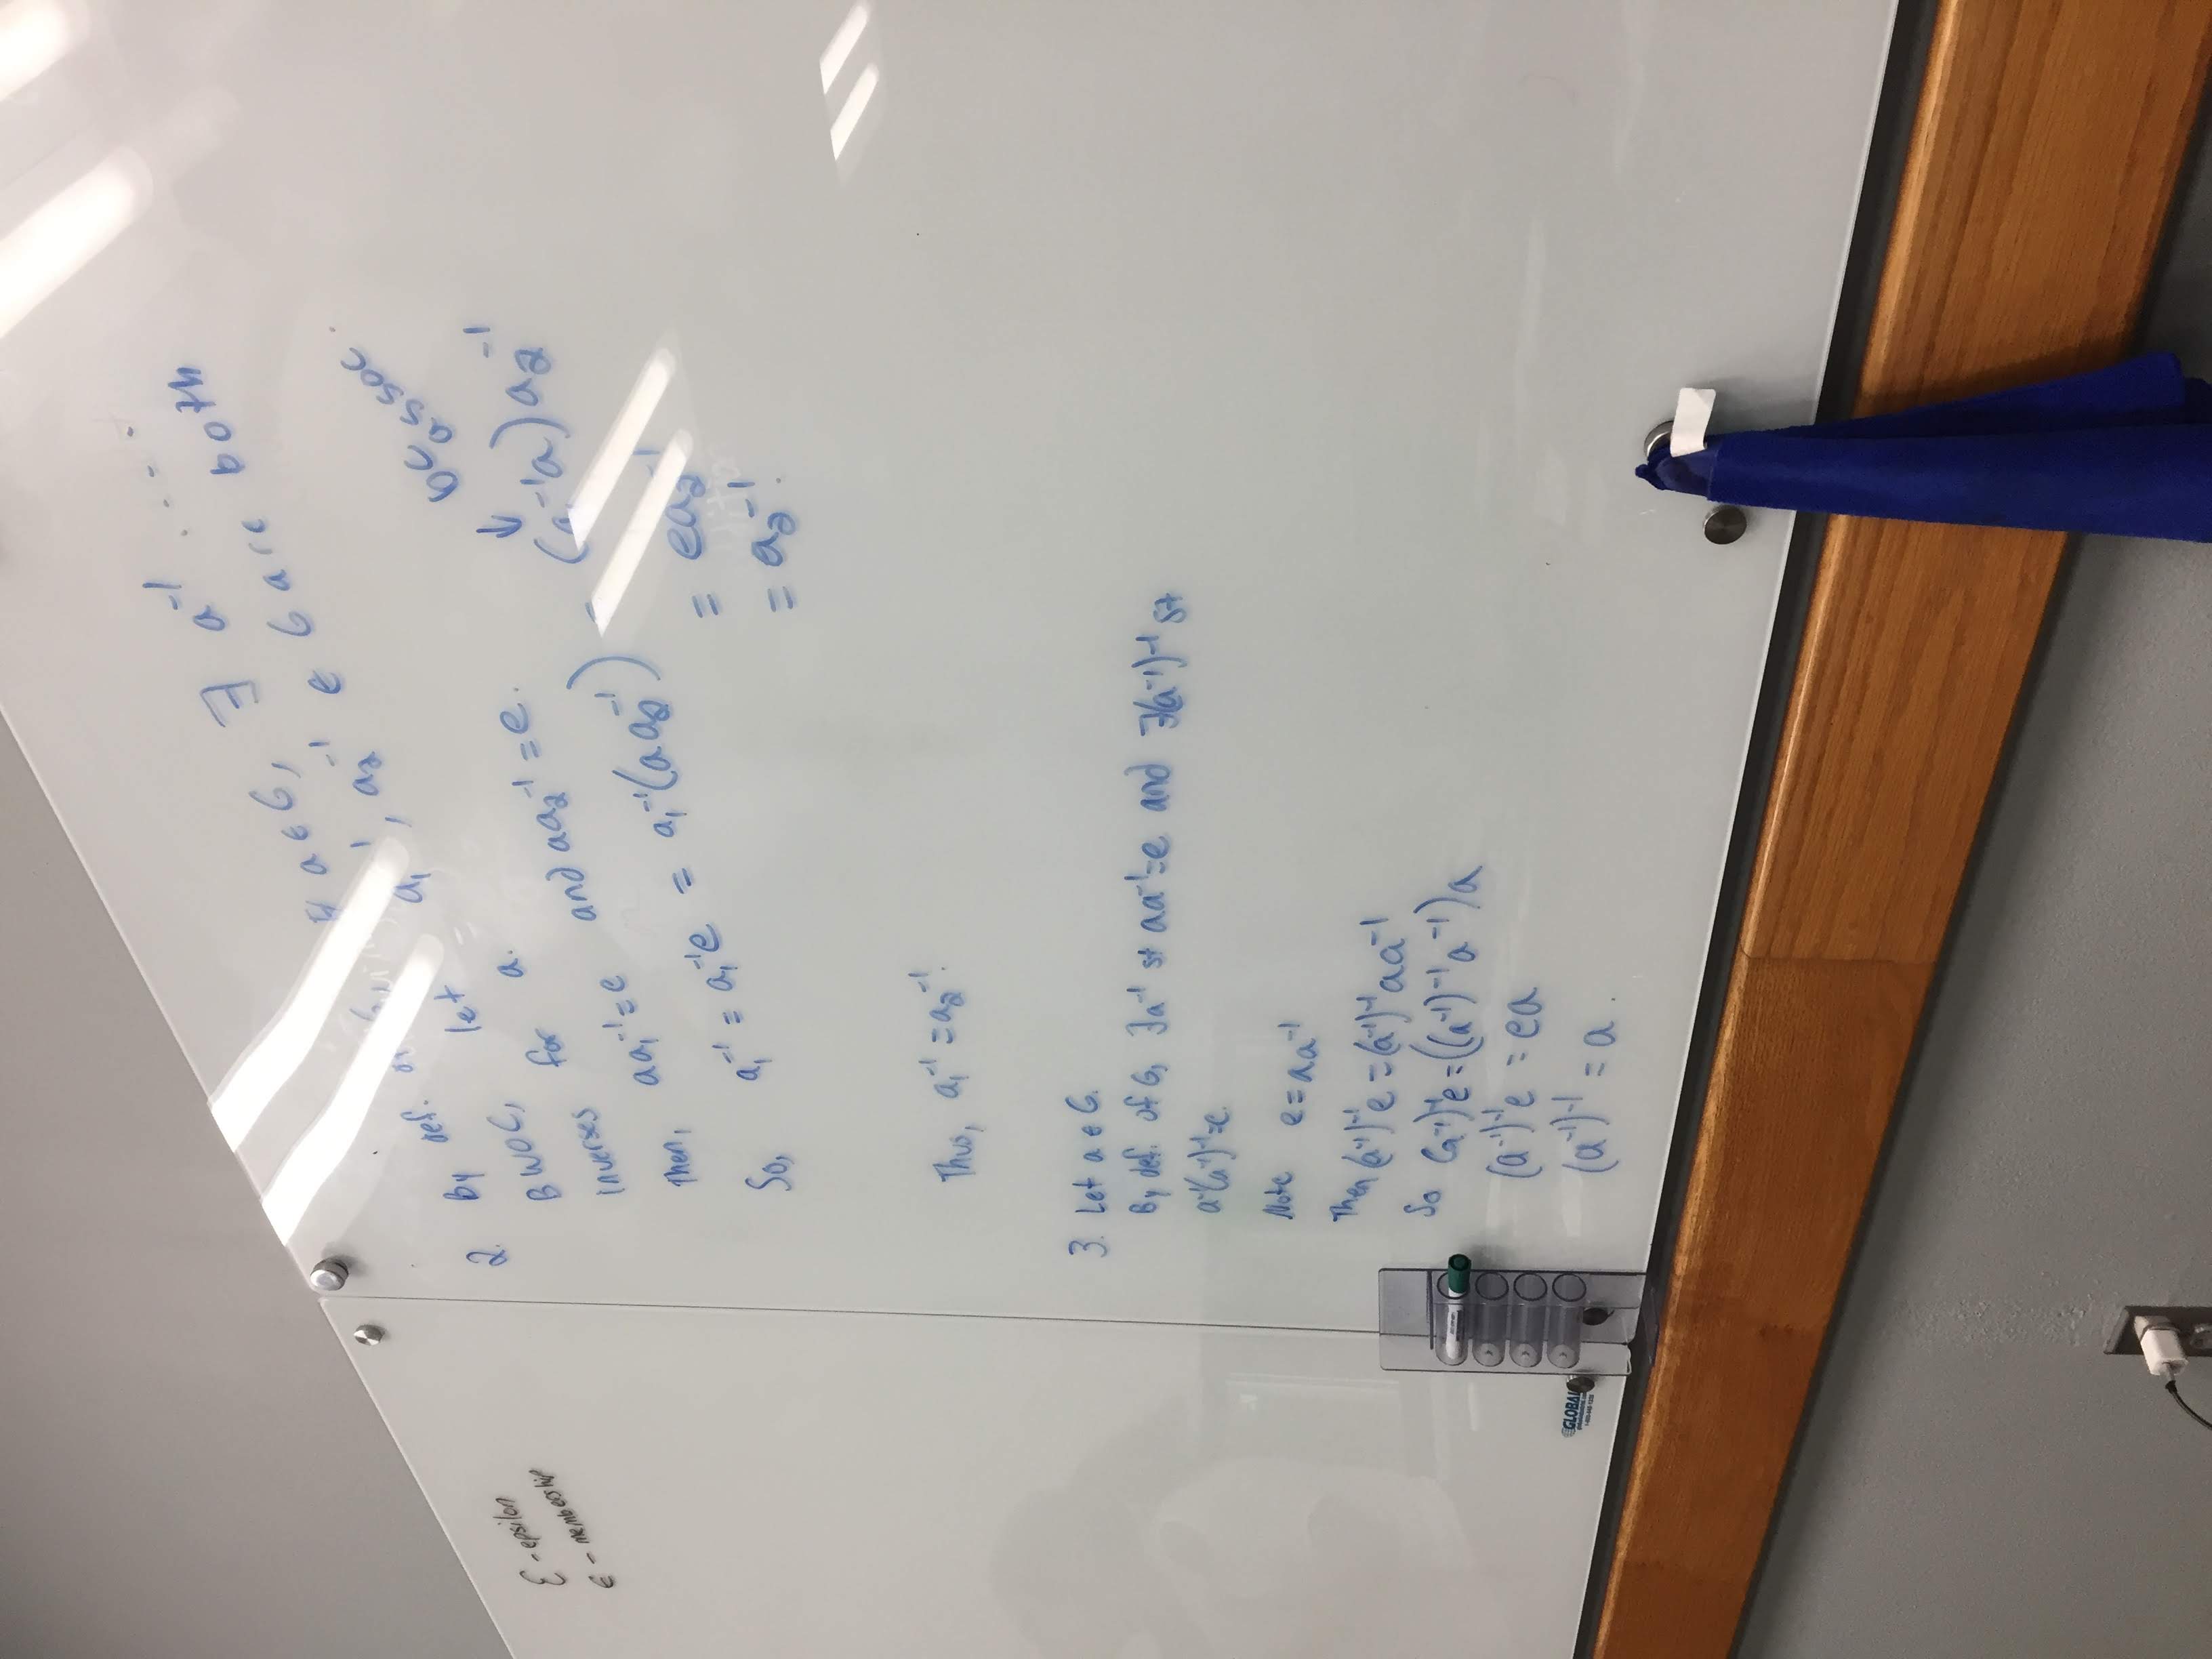 Ɛ - epsilon
∈ - membership
2. By def. of G, ∀ a ∈ G, ∃ a⁻¹ . . . .
BWOC, let a₁⁻¹, a₂⁻¹ ∈ G are both
inverses for a.
Then, aa₁⁻¹ = e and aa₂⁻¹ = e.
↓ bc assoc.
So, a₁⁻¹ = a₁⁻¹e = a₁⁻¹(aa₂⁻¹) = (a₁⁻¹a)a₂⁻¹
= ea₂⁻¹
= a₂⁻¹.
Thus, a₁⁻¹ = a₂⁻¹.
3. Let a ∈ G.
By def. of G, ∃a⁻¹ st aa⁻¹=e and ∃(a⁻¹)⁻¹ st
a⁻¹(a⁻¹)⁻¹=e.
Note e = aa⁻¹
Then (a⁻¹)⁻¹e = (a⁻¹)⁻¹aa⁻¹
So (a⁻¹)⁻¹e = ((a⁻¹)⁻¹a⁻¹)a
(a⁻¹)⁻¹e = ea
(a⁻¹)⁻¹ = a.
GLOBAL